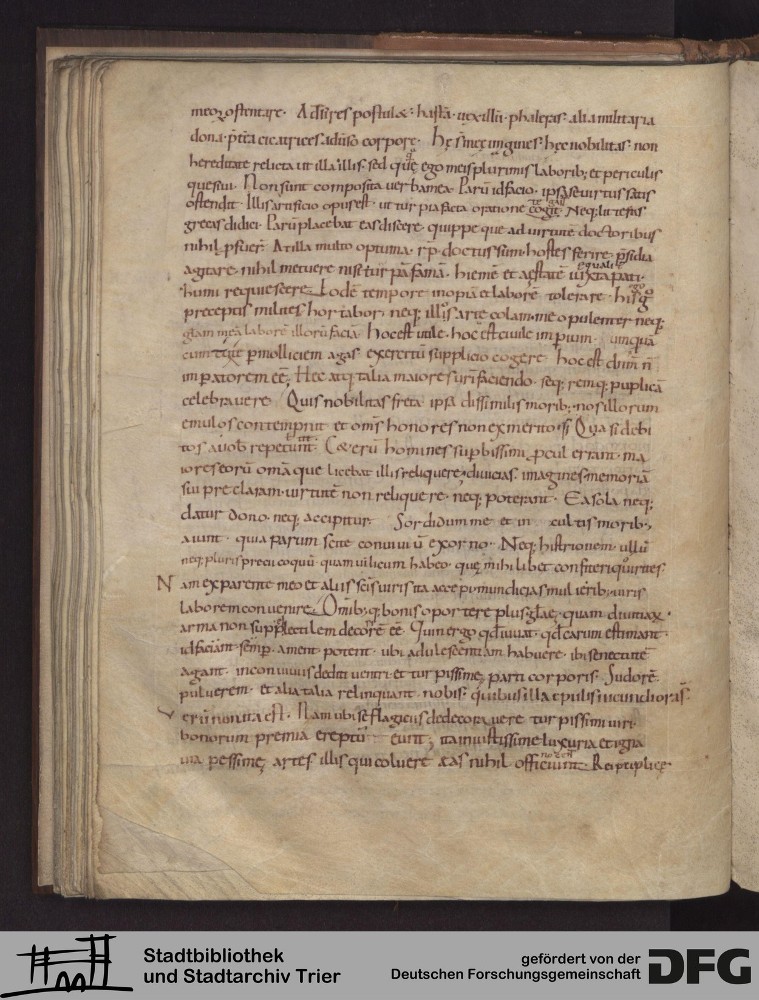 meoꝝ ostentare. At si res postulæt. hastā. uexillū. phaleras. alia militaria
dona. p̄t̄ea cicatrices aduso corpore. Hę s̄ meę imagines. hęc nobilitas. non
hereditate relicta ut illa illis. sed quę ego meis plurimis laborib; et periculis
quesiui. Non sunt composita uerba mea. Parū id facio. ipsa se uirtus satis
ostendit. Illis artificio opus est. ut turpia facta oratione Neq; litteras
grecas didici. Parū placebat eas discere. quippe que ad uirtutē doctoribus
nihil At illa multo optuma. r̄p̄. doctus sum. hostes ferire. p̄sidia
agitare. nihil metuere nisi turpā famā. hiemē et aestatē iuxta pati.
humi requiescere. Eodē tempore inopiā et laborē tolerare. his
preceptis milites hortabor. neq; illos arte colam. me opulenter neq;
glām meā laborē illorū faciā. Hoc est utile. hoc est ciuile imperium.
cum p̄ molliciem agas. exercitū supplicio cogere. hoc est dnm̄ n̄
imp̄atorem eē. Hęc atq; talia maiores uri faciendo. seq; remq; puplicā
celebrauere. Quis nobilitas freta ipsa dissimilis morib; nos illorum
emulos contempnit et oms̄ honores non ex merito Quasi debi
tos a uob̄ repetunt. Cæterū homines sup̄bissimi p̄cul errant. ma
iores eorū omīa que licebat illis reliquere. diuicias. imagines. memoriā
sui preclaram. uirtutē non reliquere. neq; poterant. Ea sola neq;
datur dono. neq; accipitur. Sordidum me et in cultis morib;
aiunt. quia parum scite conuiuiū exorno. Neq; histrionem ullū
neq; pluris precii coquū quam uilicum habeo. quę mihi libet confiteri quirites.
Nam ex parente meo et aliis scīs uiris ita accepi mundicias mulierib; uiris
laborem conuenire. Omīb; q; bonis oportere plus glāe; quam diuitiaꝝ.
arma non suppellectilem decore eē. Quin ergo qd̄ iuuat. qd̄ carum estimant.
id faciant semp̄. ament. potent. ubi adulescentiam habuere. ibi senectutē
agant. in conuiuiis dediti uentri et turpissimę parti corporis. Sudorē.
puluerem. et alia talia relinquant. nobis. quibus illa epulis iucundiora s̄.
Verū non ita est. Nam ubi se flagiciis dedecorauere turpissimi uiri.
bonorum premia ereptū eunt; ita iniustissime luxuria et igna
uia pessimę artes illis qui coluere eas nihil officiunt. Rei puplicę.
Stadtbibliothek
und Stadtarchiv Trier
gefördert von der
Deutschen Forschungsgemeinschaft
DFG